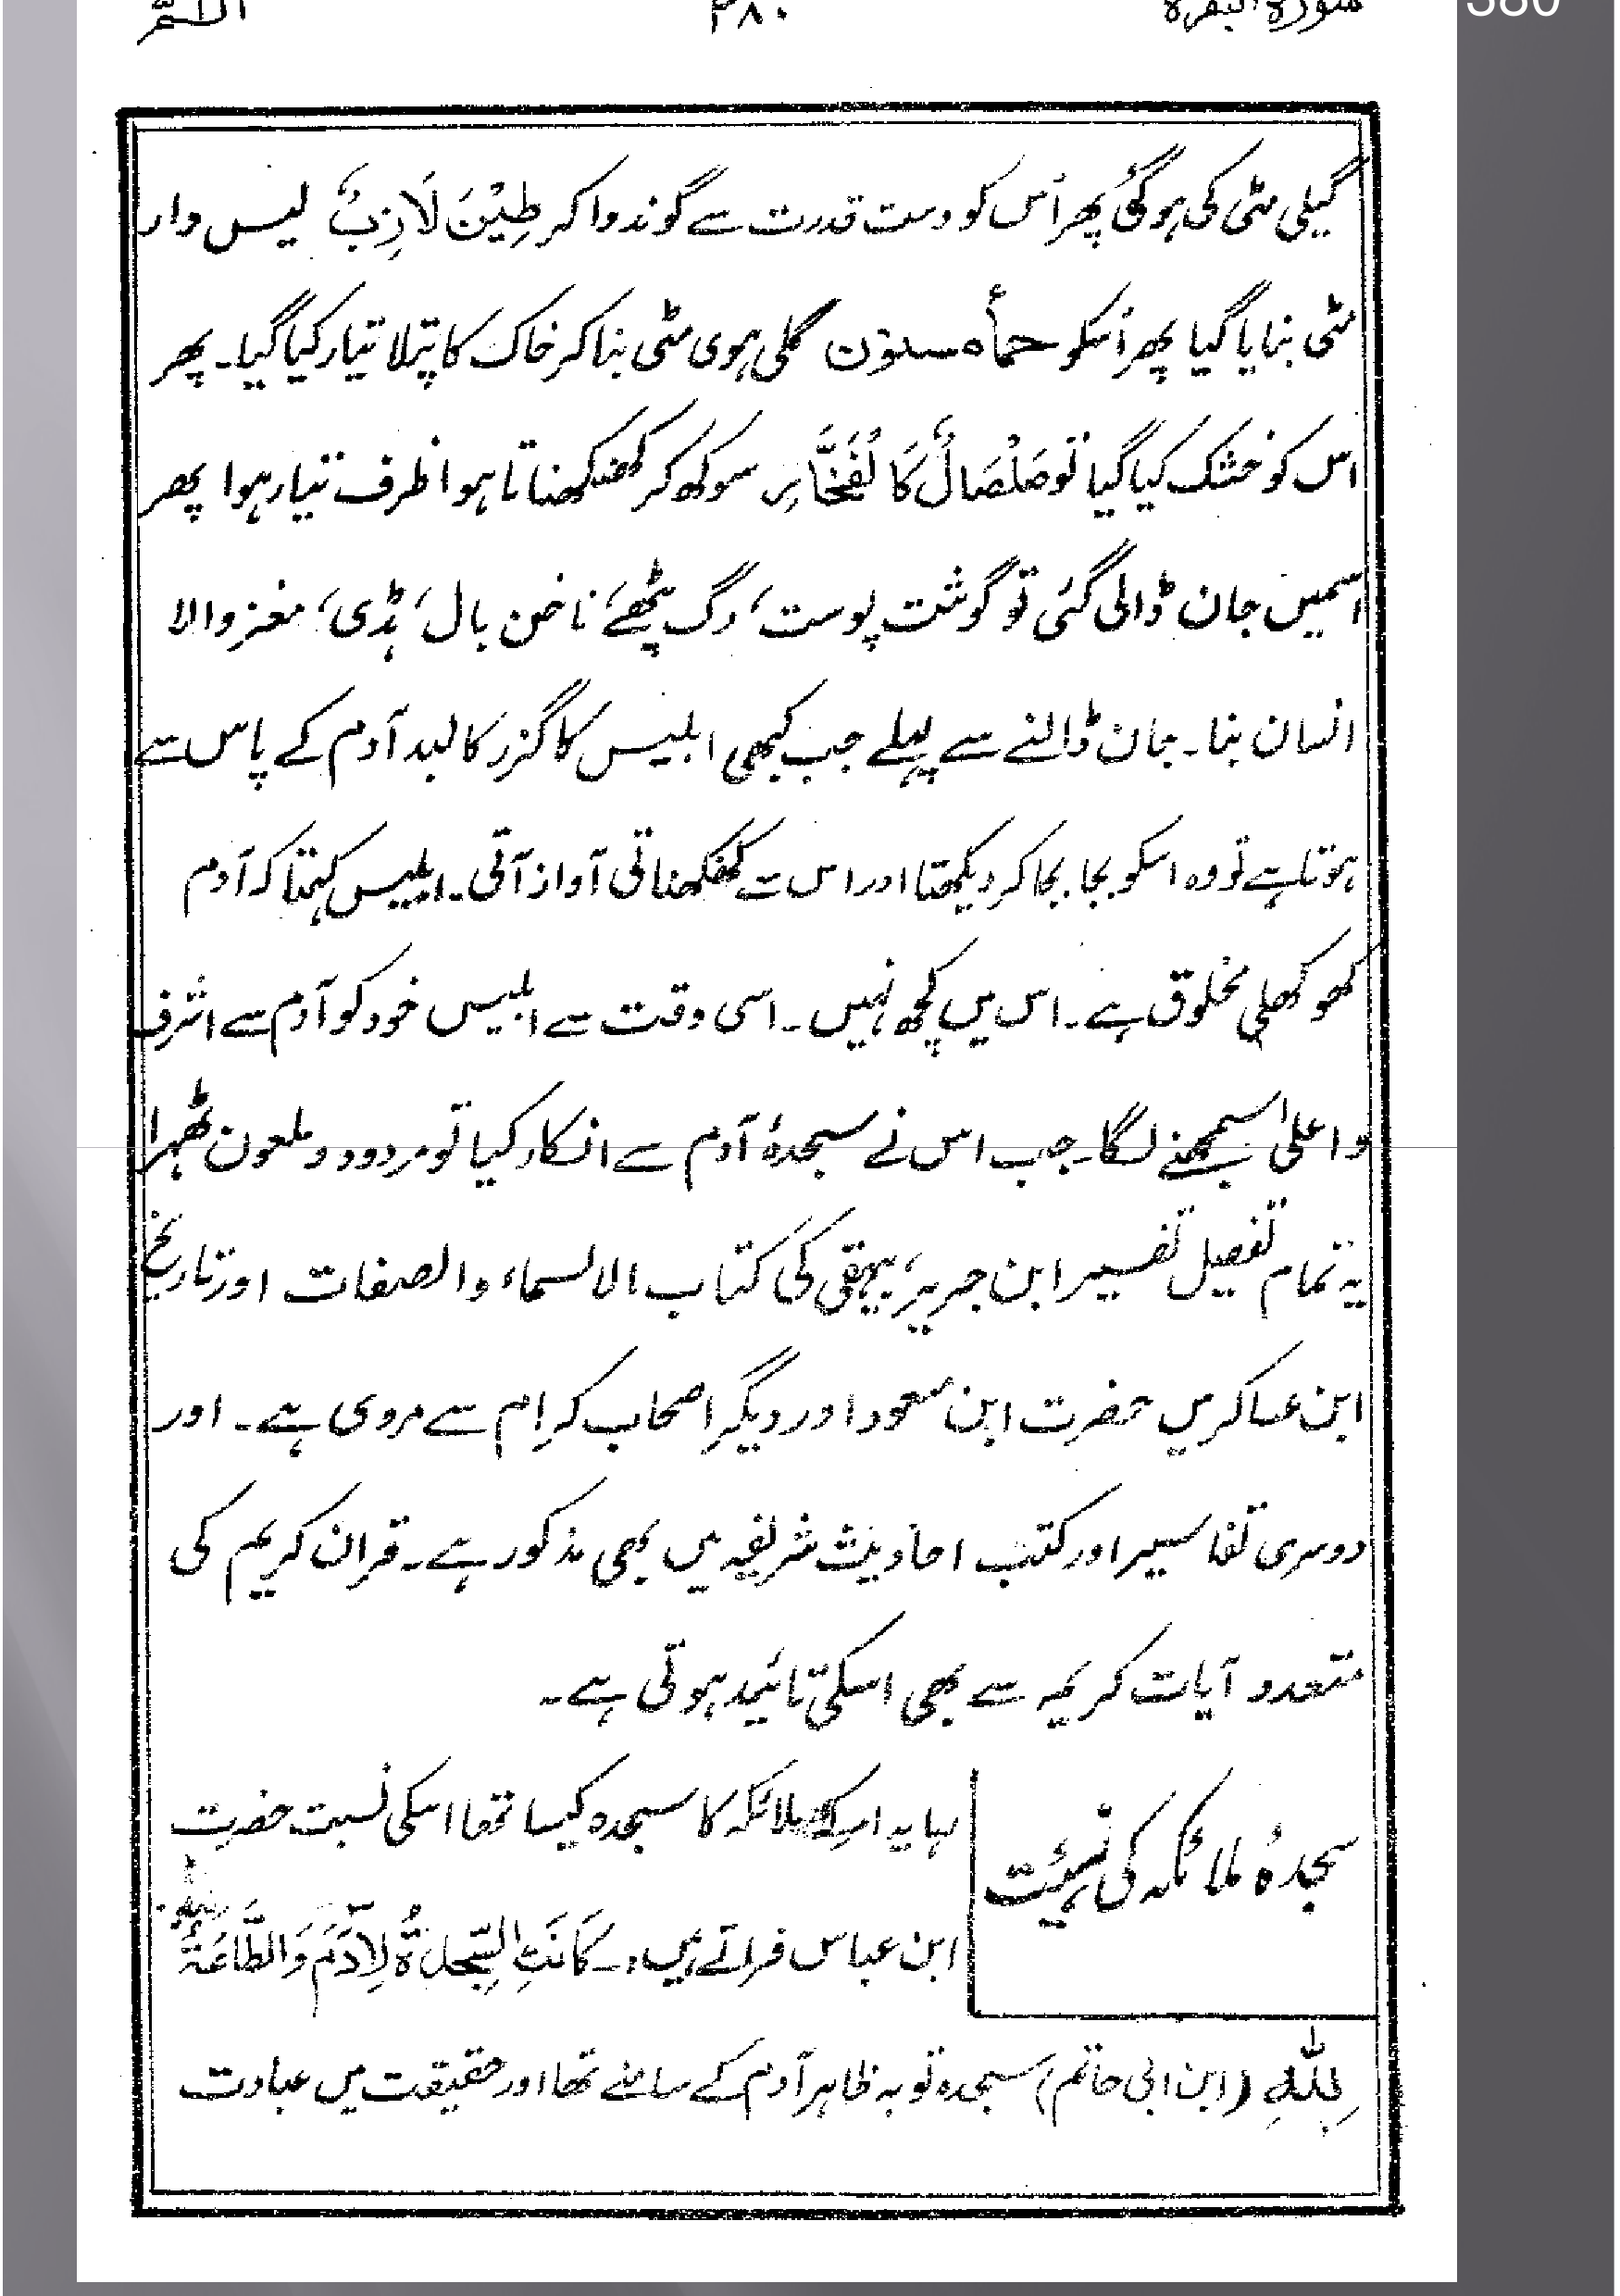 380
سورۃ البقرۃ ۳۸۰ الٓمّٓ
گیلی مٹی کی ہوگئی پھر اُس کو دست قدرت سے گوندوا کر طِیْنَ لَّازِبٌ لیس دار
مٹی بنایا گیا پھر اُسکو حمأہ سنون گلی ہوی مٹی بنا کر خاک کا پتلا تیار کیا گیا۔ پھر
اس کو خشک کیا گیا تو صَلْصَالٌ کَا لْفَخَّارِ سوکھ کر کھنکھناتا ہوا ظرف تیار ہوا پھر
اسمیں جان ڈالی گئی تو گوشت پوست، رگ پٹھے، ناخن بال، ہڈی، مغز والا
انسان بنا۔ جان ڈالنے سے پہلے جب کبھی ابلیس کا گزر کالبد آدم کے پاس سے
ہوتا ہے تو وہ اسکو بجا بجا کر دیکھتا اور اس سے کھنکھناتی آواز آتی۔ ابلیس کہتا کہ آدم
کھوکھلی مخلوق ہے۔ اس میں کچھ نہیں۔ اسی وقت سے ابلیس خود کو آدم سے اشرف
و اعلیٰ سمجھنے لگا۔ جب اس نے سجدۂ آدم سے انکار کیا تو مردود و ملعون ٹھہرا
یہ تمام تفصیل تفسیر ابن جریر، بیہقی کی کتاب الاسماء والصفات اور تاریخ
ابن عساکر میں حضرت ابن مسعود اور دیگر اصحاب کرام سے مروی ہے۔ اور
دوسری تفاسیر اور کتب احادیث شریفہ میں بھی مذکور ہے۔ قران کریم کی
متعدد آیات کریمہ سے بھی اسکی تائید ہوتی ہے۔
سجدۂ ملائکہ کی ہیئت
رہا یہ امر کہ ملائکہ کا سجدہ کیسا تھا اسکی نسبت حضرت
ابن عباس فرماتے ہیں:۔ کَانَتِ السَّجدۃُ لِاٰدَمَ وَالطَّاعَۃُ
لِلّٰہِ (ابن ابی حاتم) سجدہ تو بہ ظاہر آدم کے سامنے تھا اور حقیقت میں عبادت